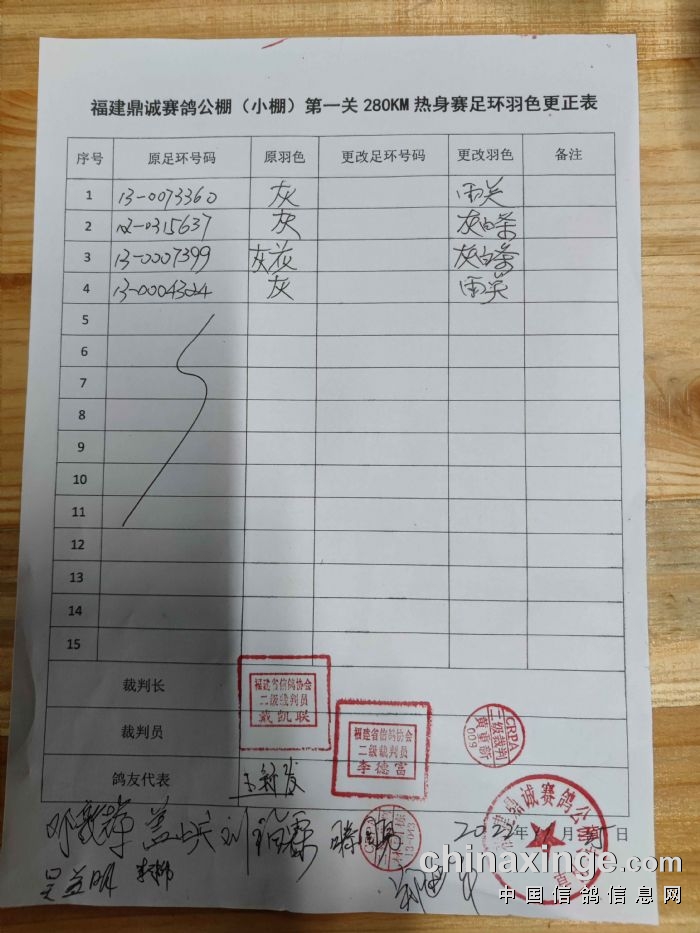 福建鼎诚赛鸽公棚（小棚）第一关 280KM 热身赛足环羽色更正表
序号 原足环号码 原羽色 更改足环号码 更改羽色 备注
1 13-0073360 灰 雨关
2 02-0315637 灰 灰白条
3 13-0007399 灰花 灰白条
4 13-0004304 灰 雨关
5
6
7
8
9
10
11
12
13
14
15
裁判长
福建省信鸽协会
二级裁判员
戴凯联
裁判员
福建省信鸽协会
二级裁判员
李德富
CRPA
二级裁判
009
鸽友代表
鼎诚赛鸽公棚
2022年 月 日
吴益明
chinaxinge.com
中国信鸽信息网